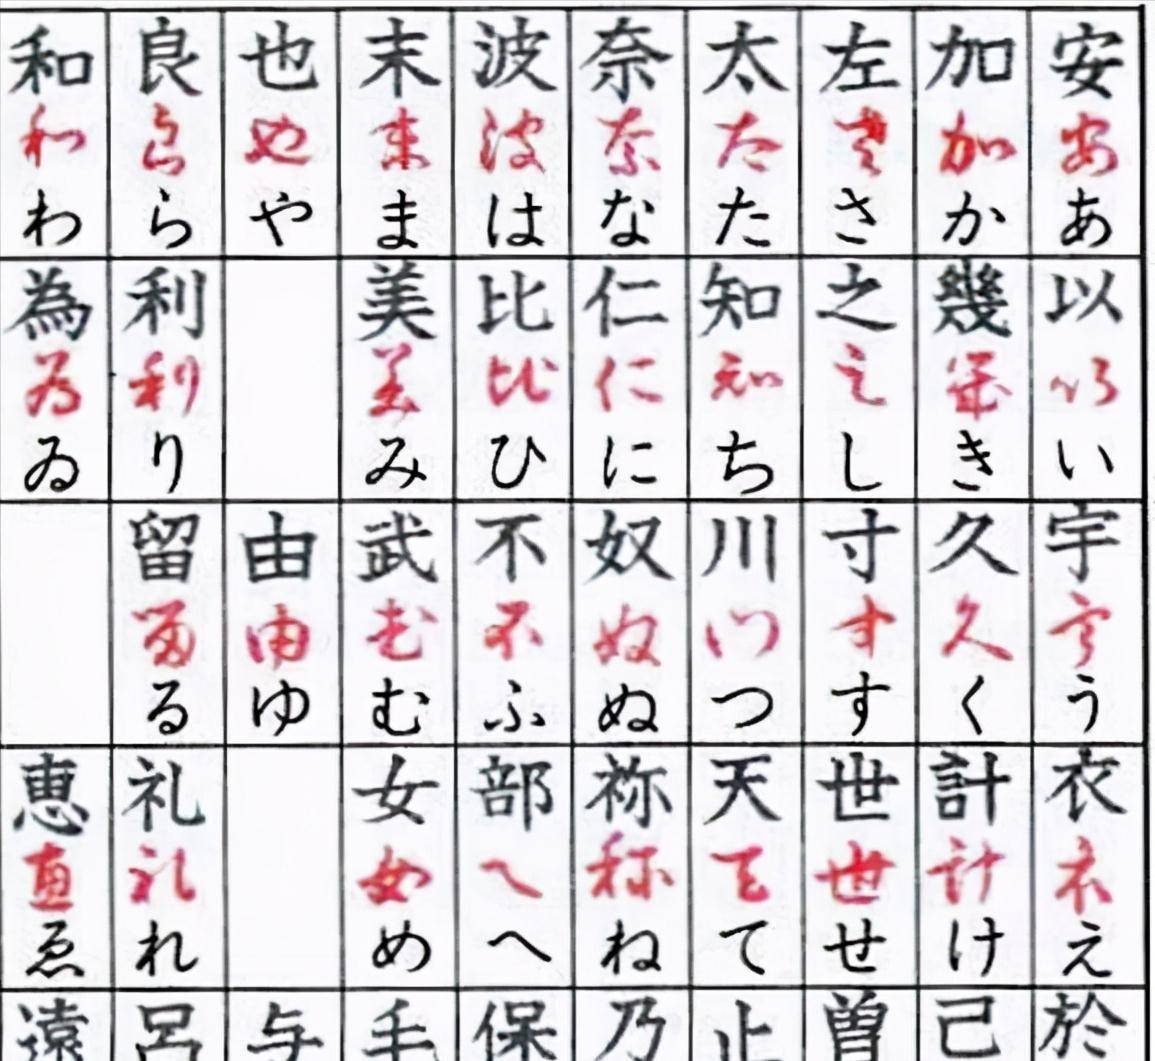 和 良 也 末 波 奈 太 左 加 安
和 良 也 末 波 奈 太 左 加 安
わ ら や ま は な た さ か あ
為 利 美 比 仁 知 之 幾 以
為 利 美 比 仁 知 之 幾 以
ゐ り み ひ に ち し き い
留 由 武 不 奴 川 寸 久 宇
留 由 武 不 奴 川 寸 久 宇
る ゆ む ふ ぬ つ す く う
恵 礼 女 部 祢 天 世 計 衣
恵 礼 女 へ 祢 天 世 計 衣
ゑ れ め へ ね て せ け え
遠 呂 与 毛 保 乃 止 曽 己 於